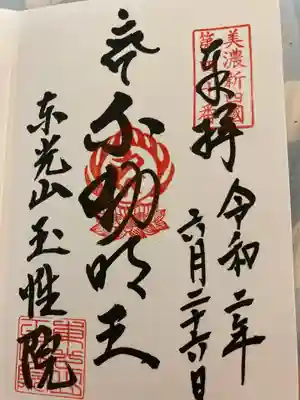 美濃新四国
奉拝
令和二年
六月二十六日
不動明王
东光山 玉性院